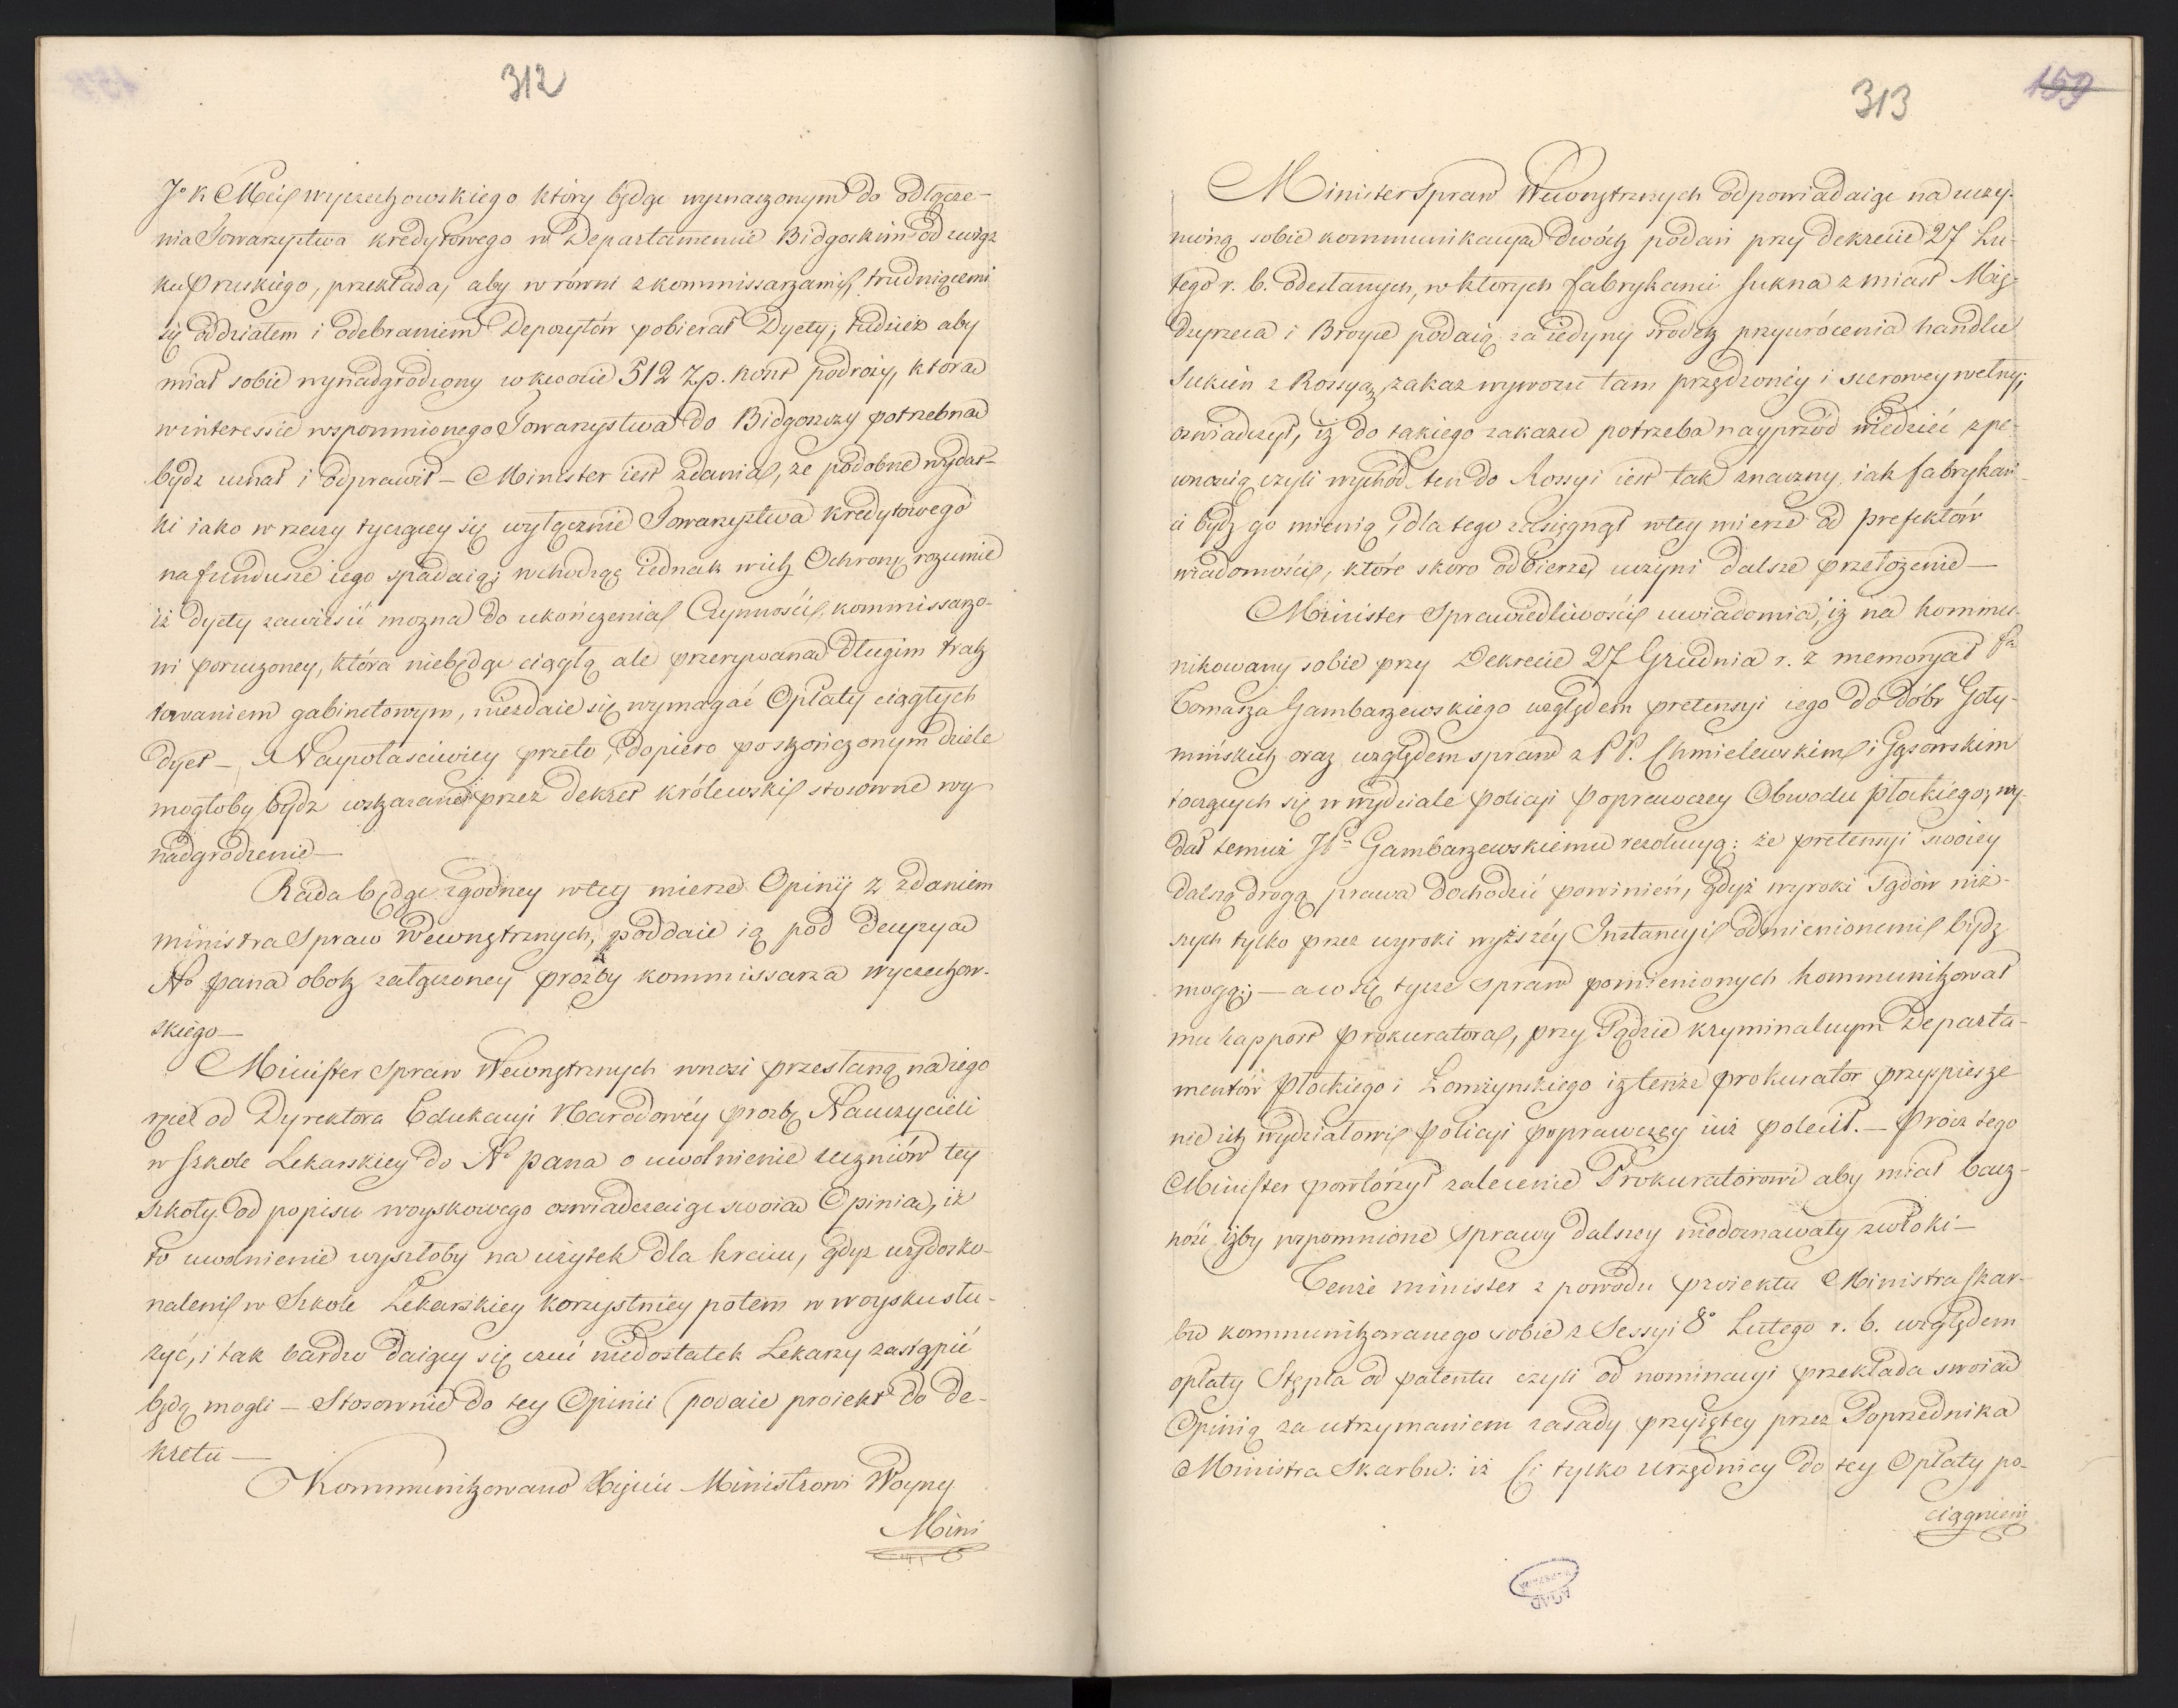 312
Jº K Mci wyczechowskiego który będąc wyznaczonym do odłącze-
nia Towarzystwa kredytowego w Departamencie Bidgoskim od związ
ku Pruskiego, przekłada, aby w równi z kommissarzami, trudniącemi
się oddziałem i odebraniem Depozytów pobierał Dyety; tudzież aby
miał sobie wynadgrodzony w kwocie 512 Z.p. koszt podroży, którą
w interessie wspomnionego Towarzystwa do Bidgoszczy potrzebną
bydz uznał i odprawił – Minister iest zdania, że podobne wydat-
ki iako w rzeczy tyczącey się wyłącznie Towarzystwa kredytowego
na fundusze iego spadaią; wchodząc iednak w ich Ochronę rozumie
iż dyety zawiesić można do ukończenia Czynności kommissarzo-
wi poruczoney, która niebędąc ciągłą ale przerywaną długim trak
towaniem gabinetowym, niezdaie się wymagać Opłaty ciągłych
dyet – Naypotasciwiey przeto, dopiero po skończonym dziele
mogłoby bydz wskazane przez dekret królewski stosowne wy
nadgrodzenie –
Rada będąc zgodney w tey mierze Opinij z zdaniem
ministra Spraw Wewnętrznych, poddaie ią pod decyzyą
Nº pana obok załączoney prozby kommissarza wyczechow-
skiego –
Minister Spraw Wewnętrznych wnosi przesłaną na ręce
iego od Dyrektora Edukacyi Narodowéy prozbę Nauczycieli
w szkole Lekarskiey do Nº pana o uwolnienie uczniów tey
szkoły od popisu woyskowego oswiadczaiąc swoią Opinią, iż
to uwolnienie wyszłoby na użytek dla kraiu, gdyż wydosko-
naleni w Szkole Lekarskiey korzystniey potém w woysku słu-
żyć, i tak bardzo daiący się czuć niedostatek Lekarzy zastąpić
będą mogli – Stosownie do tey Opinii podaie proiekt do de-
kretu –
Kommunikowano Xięciu Ministrowi Woyny
Mini
313
159
Minister Spraw Wewnętrznych odpowiadaiąc na uczy-
nioną sobie kommunikacyą dwóch podań przy dekrecie 27 Lu-
tego r. b. odesłanych, w których fabrykanci sukna z miast Mię-
dzyrzecza i Broyce podaią za iedyny srodek przywrócenia handlu
Sukien z Rossyą, zakaz wywozu tam przędzonéy i surowey wełny;
oswiadczył, iż do takiego zakazu potrzeba nayprzód wiedzieć z pe-
wnością, czyli wychód ten do Rossyi iest tak znaczny, iak fabrykan-
ci bydz go mienią, dla tego zasięgnął w tey mierze od prefektów
wiadomości, które skoro odbierze, uczyni dalsze przełożenie –
Minister Sprawiedliwości uwiadomia, iż na kommu-
nikowany sobie przy Dekrecie 27 Grudnia r. z memoryał Jº
Tomasza Gambarzewskiego względem pretensyi iego do dóbr Goty-
mińskich oraz względem spraw z PP. Chmielewskim i Gąsowskim
toczących się w wydziale Policyi Poprawczey Obwodu płockiego, wy-
dał temuż Gambarzewskiemu rezolucyą: że pretensyi swoiey
dalszą drogą prawa dochodzić powinien, gdyż wyroki sądów niż-
szych tylko przez wyroki wyższéy Instancyi odmienionemi bydz
mogą; – a co się tycze spraw pomienionych kommunikował
mu rapport Prokuratora, przy Sądzie kryminalnym Departa-
mentów Płockiego i Łomżynskiego iż tenże prokurator przyspiesze
nie ich wydziałowi Policyi poprawczey iuż polecił. – Prócz tego
Minister powtórzył zalecenie Prokuratorowi aby miał bacz-
ność, iżby wspomnione sprawy dalszey niedoznawały zwłoki –
Tenże minister z powodu proiektu Ministra skar-
bu kommunikowanego sobie z Sessyi 8º Lutego r. b. względem
opłaty Stępla od patentu czyli od nominacyi przekłada swoią
Opinią za utrzymaniem zasady przyiętey przez Poprzednika
Ministra Skarbu: iż ci tylko urzędnicy do tey Opłaty po-
ciągnieni
AGAD